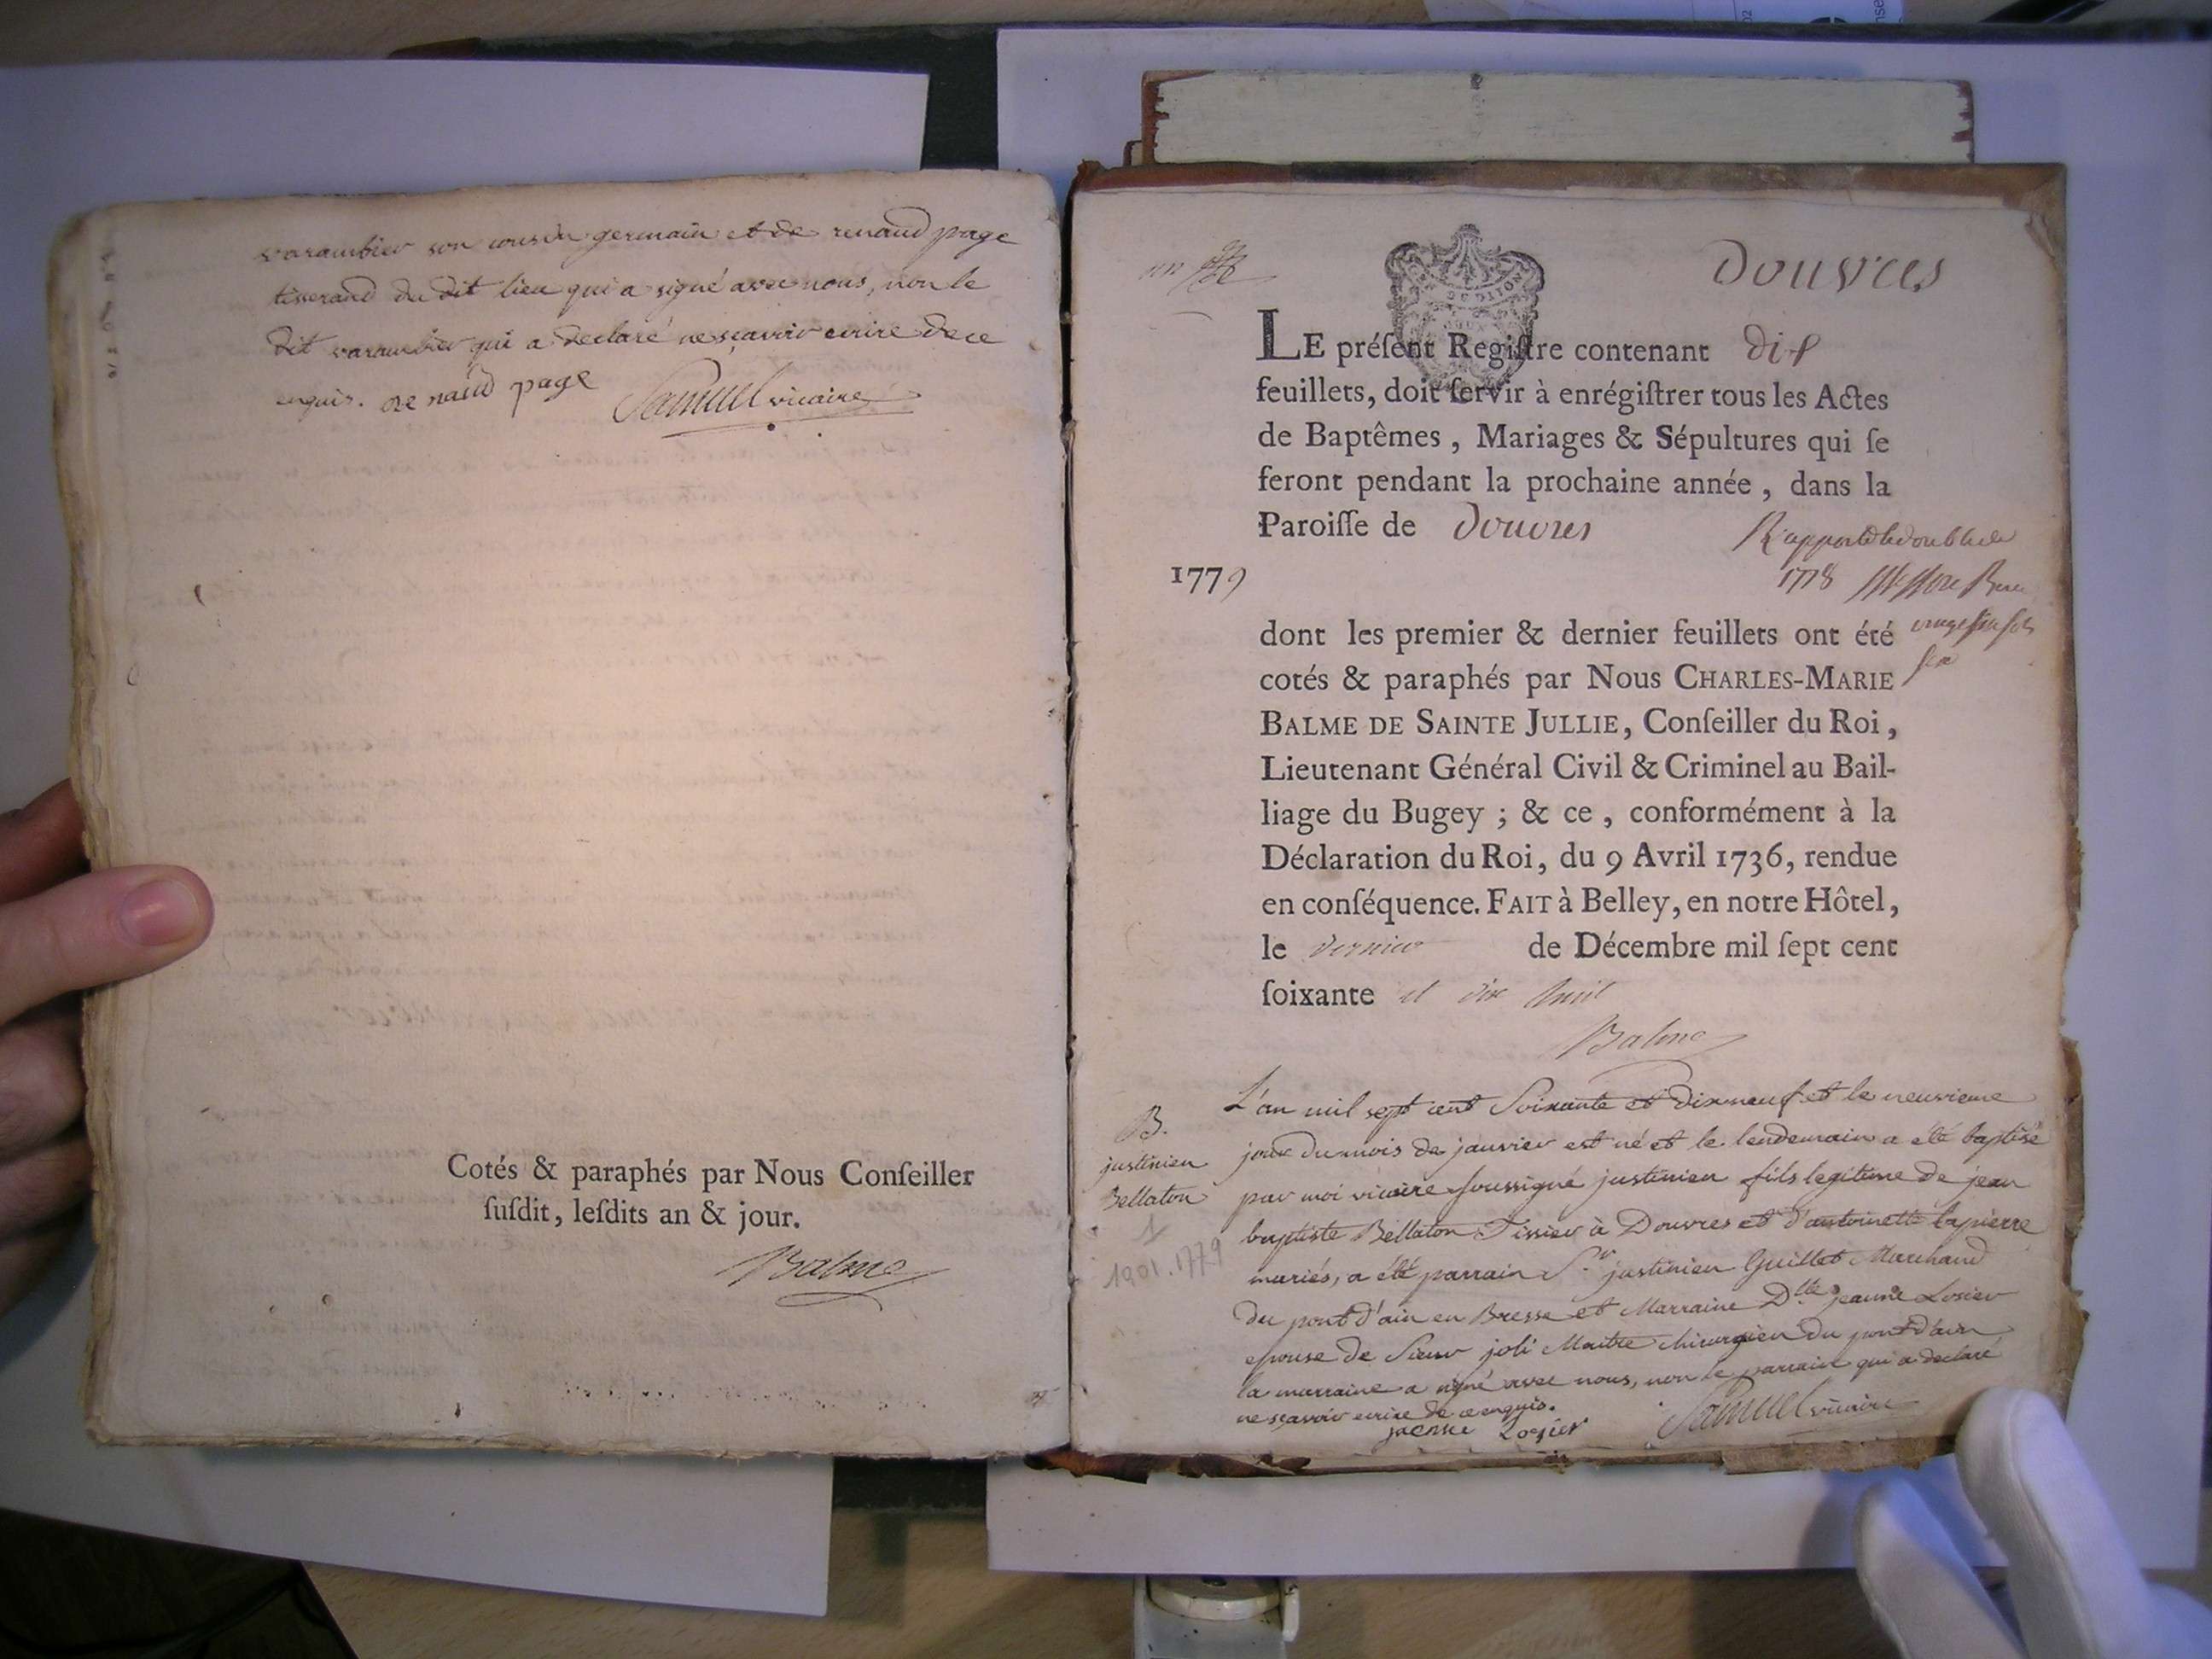 varambier son cousin germain et de renaud page
tisserand du dit lieu qui a signé avec nous, non le
dit varambier qui a declaré ne sçavoir ecrire de ce
enquis. renaud page Samuel vicaire
Cotés & paraphés par Nous Conſeiller
ſuſdit, leſdits an & jour.
Balme
un
Douvres
LE préſent Regiſtre contenant dix
feuillets, doit ſervir à enrégiſtrer tous les Actes
de Baptêmes, Mariages & Sépultures qui ſe
feront pendant la prochaine année, dans la
Paroiſſe de Douvres
Rapporté le double de
1779
1778
dont les premier & dernier feuillets ont été
cotés & paraphés par Nous CHARLES-MARIE
BALME DE SAINTE JULLIE, Conſeiller du Roi,
Lieutenant Général Civil & Criminel au Bail-
liage du Bugey ; & ce, conformément à la
Déclaration du Roi, du 9 Avril 1736, rendue
en conſéquence. FAIT à Belley, en notre Hôtel,
le dernier de Décembre mil ſept cent
ſoixante et dix huit
Balme
B.
justinien
Bellaton
1
1901.1779
L'an mil sept cent Soixante et Dixneuf et le neuvieme
jour du mois de janvier est né et le lendemain a été baptisé
par moi vicaire soussigné justinien fils legitime de jean
baptiste Bellaton Tissier à Douvres et d'antoinette lapierre
mariés, a été parrain Sr. justinien Guillot Marchand
du pont d'ain en Bresse et Marraine Dlle jeanne Losier
epouse de Sieur joli Maitre chirurgien du pont d'ain
la marraine a signé avec nous, non le parrain qui a declaré
ne sçavoir ecrire de ce enquis.
jaenne Losier Samuel vicaire